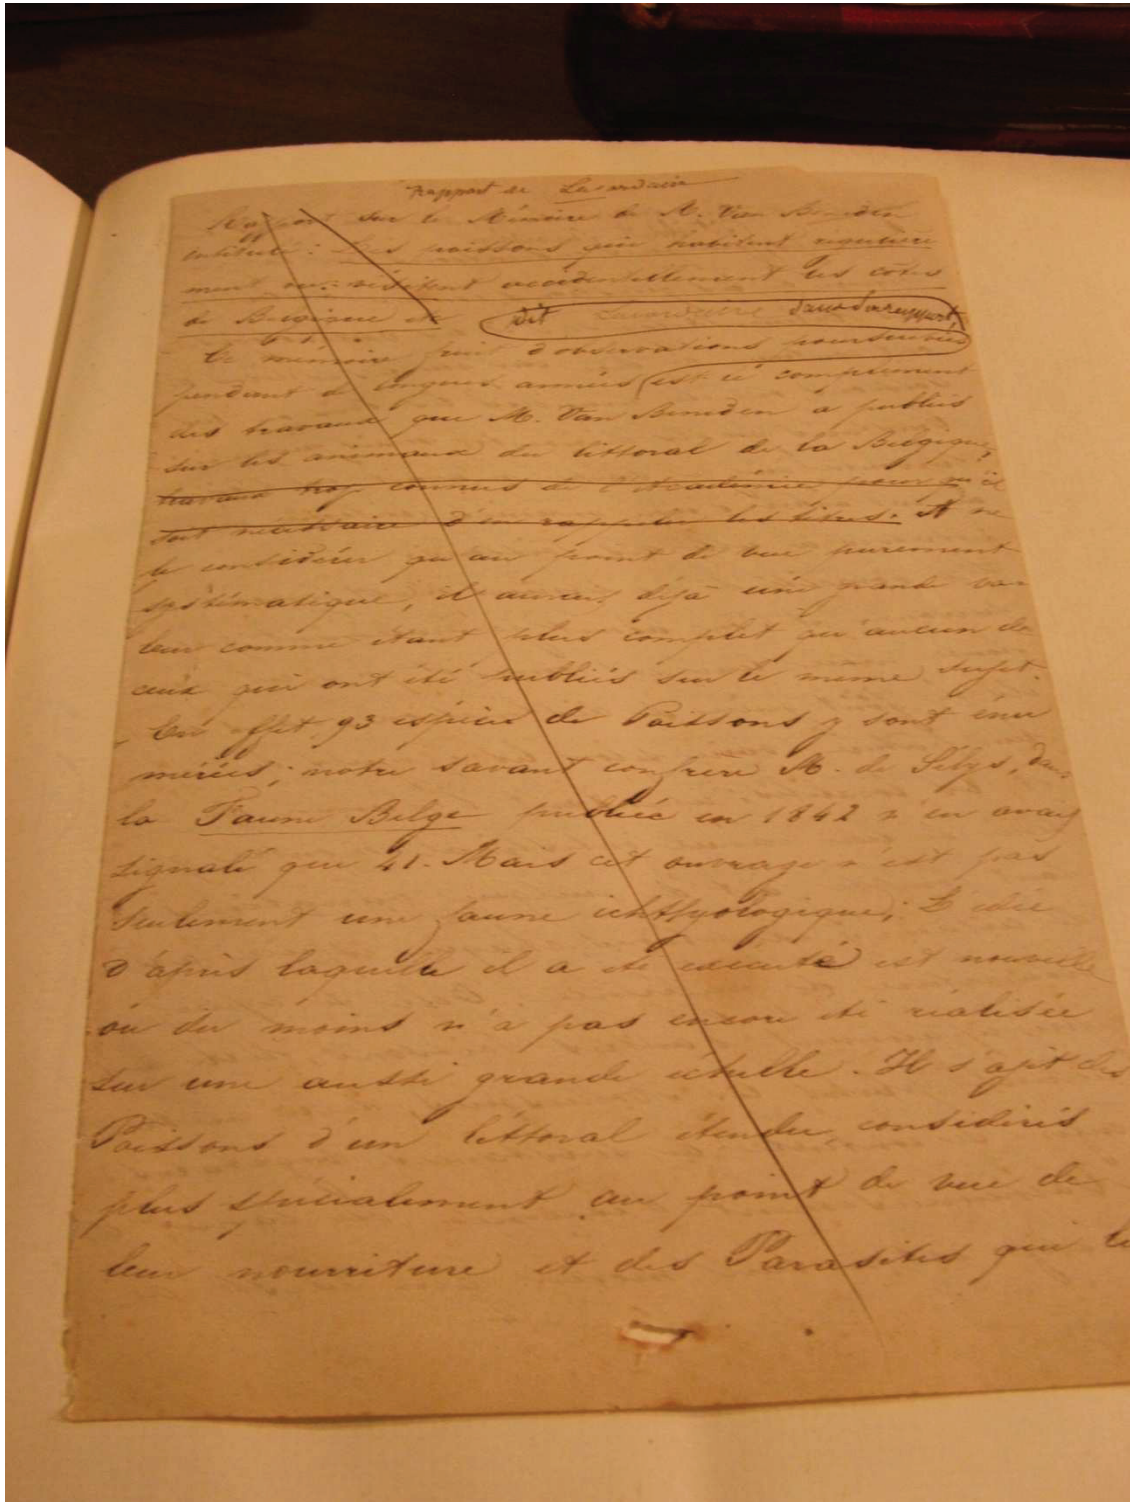 Rapport de Lacordaire
Rapport sur le Mémoire de M. Van Beneden
intitulé : Les poissons qui habitent régulière
ment ou visitent accidentellement les côtes
de Belgique et dit Lacordaire dans son rapport,
Ce mémoire fruit d'observations poursuivies
pendant de longues années est le complément
des travaux que M. Van Beneden a publiés
sur les animaux du littoral de la Belgique,
travaux trop connus de l'Académie pour qu'il
soit nécessaire d'en rappeler les titres. A ne
le considérer qu'au point de vue purement
systématique, il aurait déjà une grande va
leur comme étant plus complet qu'aucun de
ceux qui ont été publiés sur le même sujet.
En effet 93 espèces de Poissons y sont énu
mérées; notre savant confrère M. de Sélys, dans
la Faune Belge publiée en 1842 n'en avait
signalé que 41. Mais cet ouvrage n'est pas
seulement une faune ichthyologique; L'idée
d'après laquelle il a été exécuté est nouvelle
ou du moins n'a pas encore été réalisée
sur une aussi grande échelle. Il s'agit des
Poissons d'un littoral étendu, considérés
plus spécialement au point de vue de
leur nourriture et des Parasites qui